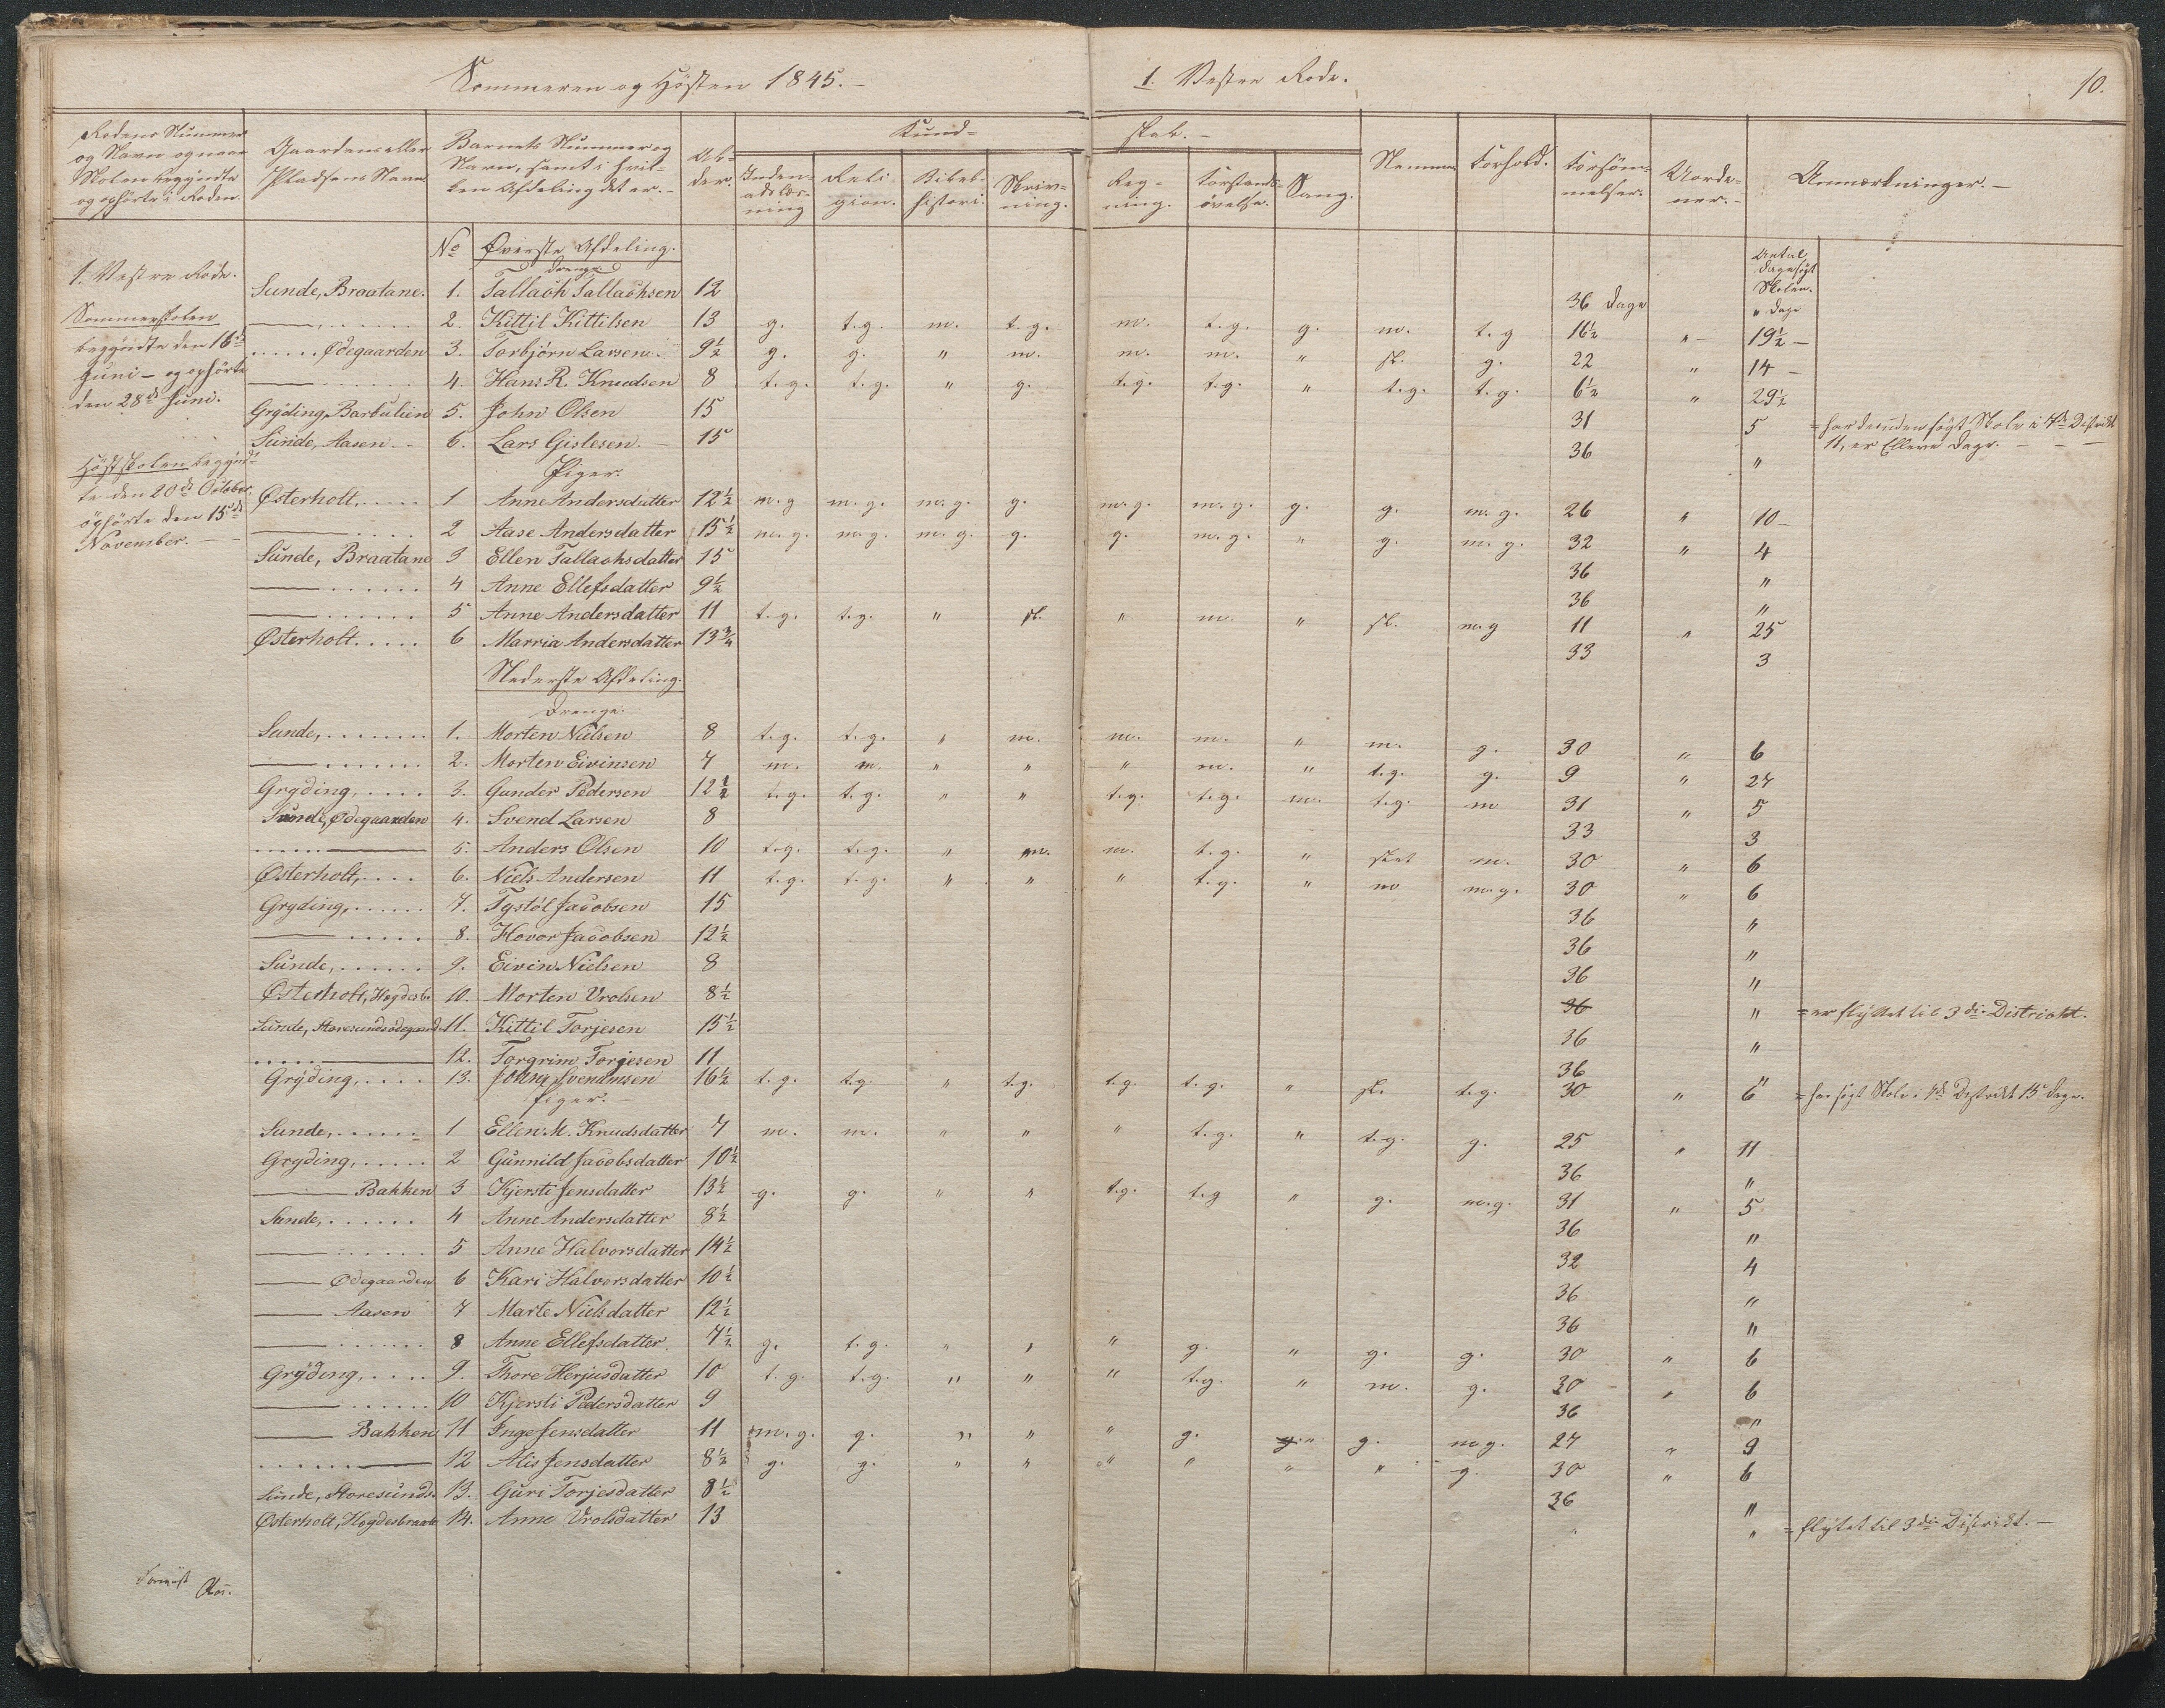 Sommeren og Høsten 1845.-
1. Vestre Rode.
10.
Rodens Nummer og Navn og naar Skolen begyndte og ophørte i Roden.
Gaardens eller Pladsens Navn
Barnets Nummer og Navn, samt i hvilken Afdeling det er.-
Alder.
Kundskab.-
Indenadslæsning
Religion.
Bibelhistori.
Skrivning.
Regning.
Forstandsøvelse.
Sang.
Nemme
Forhold.
Forsømmelser.
Uordener.-
Anmærkninger.-
No Øverste Afdeling.
Drenge
Antal Dage søgt Skolen.
1. Vestre Rode.
Sommerskolen begyndte den 16de Juni - og ophørte den 28de Juni.
Høstskolen begyndte den 20de October, ophørte den 15de November.
Sunde, Braatane. 1. Tallach Tallachsen 12 36 Dage " Dage
——, ...... 2. Kittil Kittilsen 13 g. t.g. m. t.g. m. t.g. g. m. t.g 16½ " - 19½ -
..... Ødegaarden 3. Torbjörn Larsen. 9½ g. g. " m. m. m. " sl. g. 22 " 14 -
—— ...... 4. Hans R. Knudsen 8 t.g. t.g. " g. t.g. t.g. " t.g. t.g. 6½ " 29½
Gryding, Barbulien 5. John Olsen 15 31 5 = har desuden søgt Skole i 4de Distrikt
11, er Elleve Dage.
Sunde, Aasen. - 6. Lars Gislesen. - 15 36 "
Piger.
Østerholt. .... 1 Anne Andersdatter 12½ m.g m.g. m.g. g. m.g. m.g. g. g. m.g. 26 " 10 -
—— .... 2 Aase Andersdatter 15½ m.g. m.g. m.g. g. g. m.g. " g. m.g. 32 " 4
Sunde, Braatane 3 Ellen Tallachsdatter 15 36 "
—— ...... 4 Anne Ellefsdatter 9½ 36 "
—— ...... 5 Anne Andersdatter 11 t.g. t.g. " sl. " m. " sl. m.g 11 " 25
Østerholt. .... 6 Marria Andersdatter 13¾ 33 3
Nederste Afdeling.
Drenge.
Sunde, ....... 1. Morten Nielsen 8 t.g. t.g. " m. m. m. " m. g. 30 " 6
—— ...... 2. Morten Eivinsen 7 m. m. " " " m. " t.g. g. 9 " 27
Gryding, .... 3. Gunder Pedersen 12½ t.g. t.g. " " t.g. t.g. m. t.g. m 31 " 5
Sunde, Ødegaarden 4. Svend Larsen 8 33 3
...... —— 5. Anders Olsen 10 t.g. t.g. " m. m. t.g. " slet m. 30 " 6
Østerholt, .... 6. Niels Andersen 11 t.g. t.g. " " " t.g. " m m.g. 30 " 6
Gryding, ...... 7. Tystöl Jacobsen 15 36 "
—— ..... 8. Hovor Jacobsen 12½ 36 "
Sunde, ...... 9. Eivin Nielsen 8 36 "
Østerholt, Høgdesb. 10. Morten Vrolsen 8½ 36 " = er flyttet til 3die District.
Sunde, Storesundsødegaard 11. Kittil Torjesen 15½ 36 "
...... —— 12. Torgrim Torgesen 11 36 "
Gryding, .... 13. John Svendnsen 16½ t.g. t.g. " t.g. t.g. t.g. " sl. t.g. 30 " 6 = har søgt Skole i 4de Distrikt 15 Dage.
Piger. -
Sunde, ...... 1 Ellen M. Knudsdatter 7 m. m. " " " t.g. " t.g. g. 25 " 11
Gryding, ..... 2 Gunnild Jacobsdatter 10½ 36 "
—— Bakken 3 Kjersti Jensdatter 13½ g. g. " " t.g. t.g " g. m.g. 31 " 5
Sunde, ...... 4 Anne Andersdatter 8½ 36 "
—— ...... 5 Anne Halvorsdatter 14½ 32 4
—— Ødegaarden 6 Kari Halvorsdatter 10½ 36 "
—— Aasen 7 Marte Nielsdatter 12½ 36 "
—— ...... 8 Anne Ellefsdatter. 7½ g. t.g. " " " g. " g. g. 30 " 6
Gryding, .... 9. Thore Herjusdatter 10 t.g. t.g. " " " t.g. " m. g. 30 " 6
—— ..... 10 Kjersti Pedersdatter 9 36 "
—— Bakken 11 Inge Jensdatter 11 m.g. g. " " " g. g. " g. m.g. 27 " 9
...... —— 12 Alis Jensdatter 8½ g. g. " " " " " " g. 30 " 6
Sunde, Storesunds. 13. Guri Torjesdatter 8½ 36 "
Østerholt, Høgdesbraate 14. Anne Vrolsdatter 13 " " = flyttet til 3die Distrikt. -